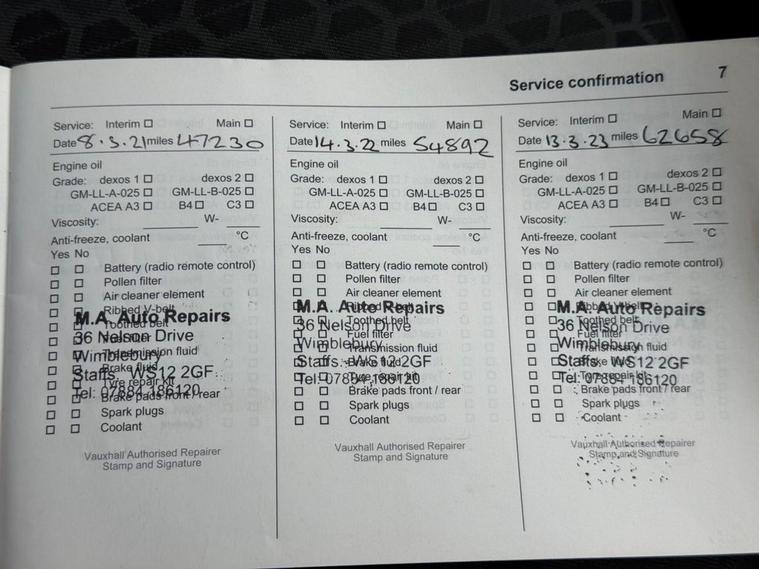 Service confirmation 7
Service: Interim ☐ Main ☐
Date 8.3.21 miles 47230
Engine oil
Grade: dexos 1 ☐ dexos 2 ☐
GM-LL-A-025 ☐ GM-LL-B-025 ☐
ACEA A3 ☐ B4 ☐ C3 ☐
Viscosity: W-
Anti-freeze, coolant °C
Yes No
☐ ☐ Battery (radio remote control)
☐ ☐ Pollen filter
☐ ☐ Air cleaner element
☐ ☐ Ribbed V-belt
☐ ☐ Toothed belt
☐ ☐ Fuel filter
☐ ☐ Transmission fluid
☐ ☐ Brake fluid
☐ ☐ Tyre repair kit
☐ ☐ Brake pads front / rear
☐ ☐ Spark plugs
☐ ☐ Coolant
M.A. Auto Repairs
36 Nelson Drive
Wimblebury
Staffs. WS12 2GF
Tel: 07884 186120
Vauxhall Authorised Repairer
Stamp and Signature
Service: Interim ☐ Main ☐
Date 14.3.22 miles 54892
Engine oil
Grade: dexos 1 ☐ dexos 2 ☐
GM-LL-A-025 ☐ GM-LL-B-025 ☐
ACEA A3 ☐ B4 ☐ C3 ☐
Viscosity: W-
Anti-freeze, coolant °C
Yes No
☐ ☐ Battery (radio remote control)
☐ ☐ Pollen filter
☐ ☐ Air cleaner element
☐ ☐ Ribbed V-belt
☐ ☐ Toothed belt
☐ ☐ Fuel filter
☐ ☐ Transmission fluid
☐ ☐ Brake fluid
☐ ☐ Tyre repair kit
☐ ☐ Brake pads front / rear
☐ ☐ Spark plugs
☐ ☐ Coolant
M.A. Auto Repairs
36 Nelson Drive
Wimblebury
Staffs. WS12 2GF
Tel: 07884 186120
Vauxhall Authorised Repairer
Stamp and Signature
Service: Interim ☐ Main ☐
Date 13.3.23 miles 62658
Engine oil
Grade: dexos 1 ☐ dexos 2 ☐
GM-LL-A-025 ☐ GM-LL-B-025 ☐
ACEA A3 ☐ B4 ☐ C3 ☐
Viscosity: W-
Anti-freeze, coolant °C
Yes No
☐ ☐ Battery (radio remote control)
☐ ☐ Pollen filter
☐ ☐ Air cleaner element
☐ ☐ Ribbed V-belt
☐ ☐ Toothed belt
☐ ☐ Fuel filter
☐ ☐ Transmission fluid
☐ ☐ Brake fluid
☐ ☐ Tyre repair kit
☐ ☐ Brake pads front / rear
☐ ☐ Spark plugs
☐ ☐ Coolant
M.A. Auto Repairs
36 Nelson Drive
Wimblebury
Staffs. WS12 2GF
Tel: 07884 186120
Vauxhall Authorised Repairer
Stamp and Signature